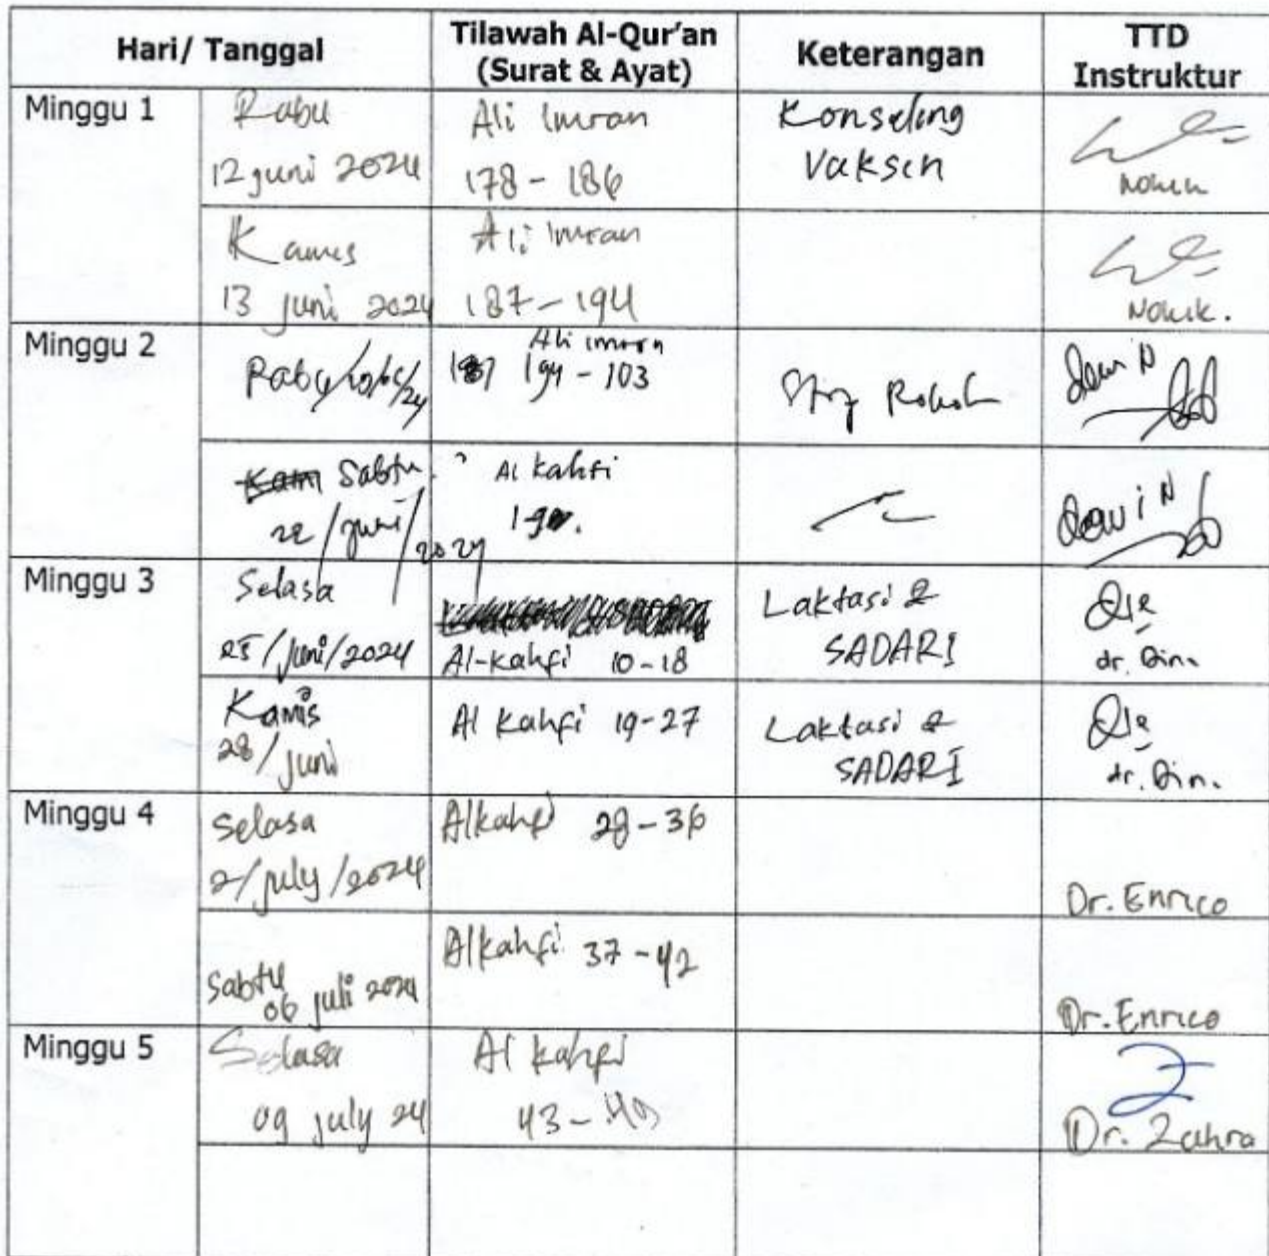 Hari/ Tanggal
Tilawah Al-Qur'an
(Surat & Ayat)
Keterangan
TTD
Instruktur
Minggu 1
Rabu
12 juni 2024
Ali Imran
178 - 186
Konseling
Vaksin
Kamis
13 juni 2024
Ali Imran
187 - 194
Minggu 2
Rabu/
Ali imran
194 - 103
Stop Rokok
Dewi N
Sabtu
22/juni/2024
Al kahfi
Dewi N
Minggu 3
Selasa
25/Juni/2024
Al-kahfi 10-18
Laktasi &
SADARI
dr. Qin.
Kamis
28/juni
Al kahfi 19-27
Laktasi &
SADARI
dr. Qin.
Minggu 4
Selasa
2/july/2024
Alkahfi 28-36
Dr. Enrico
Sabtu
06 juli 2024
Alkahfi 37-42
Dr. Enrico
Minggu 5
Selasa
09 july 24
Al kahfi
43 - 49
Dr. Zahra